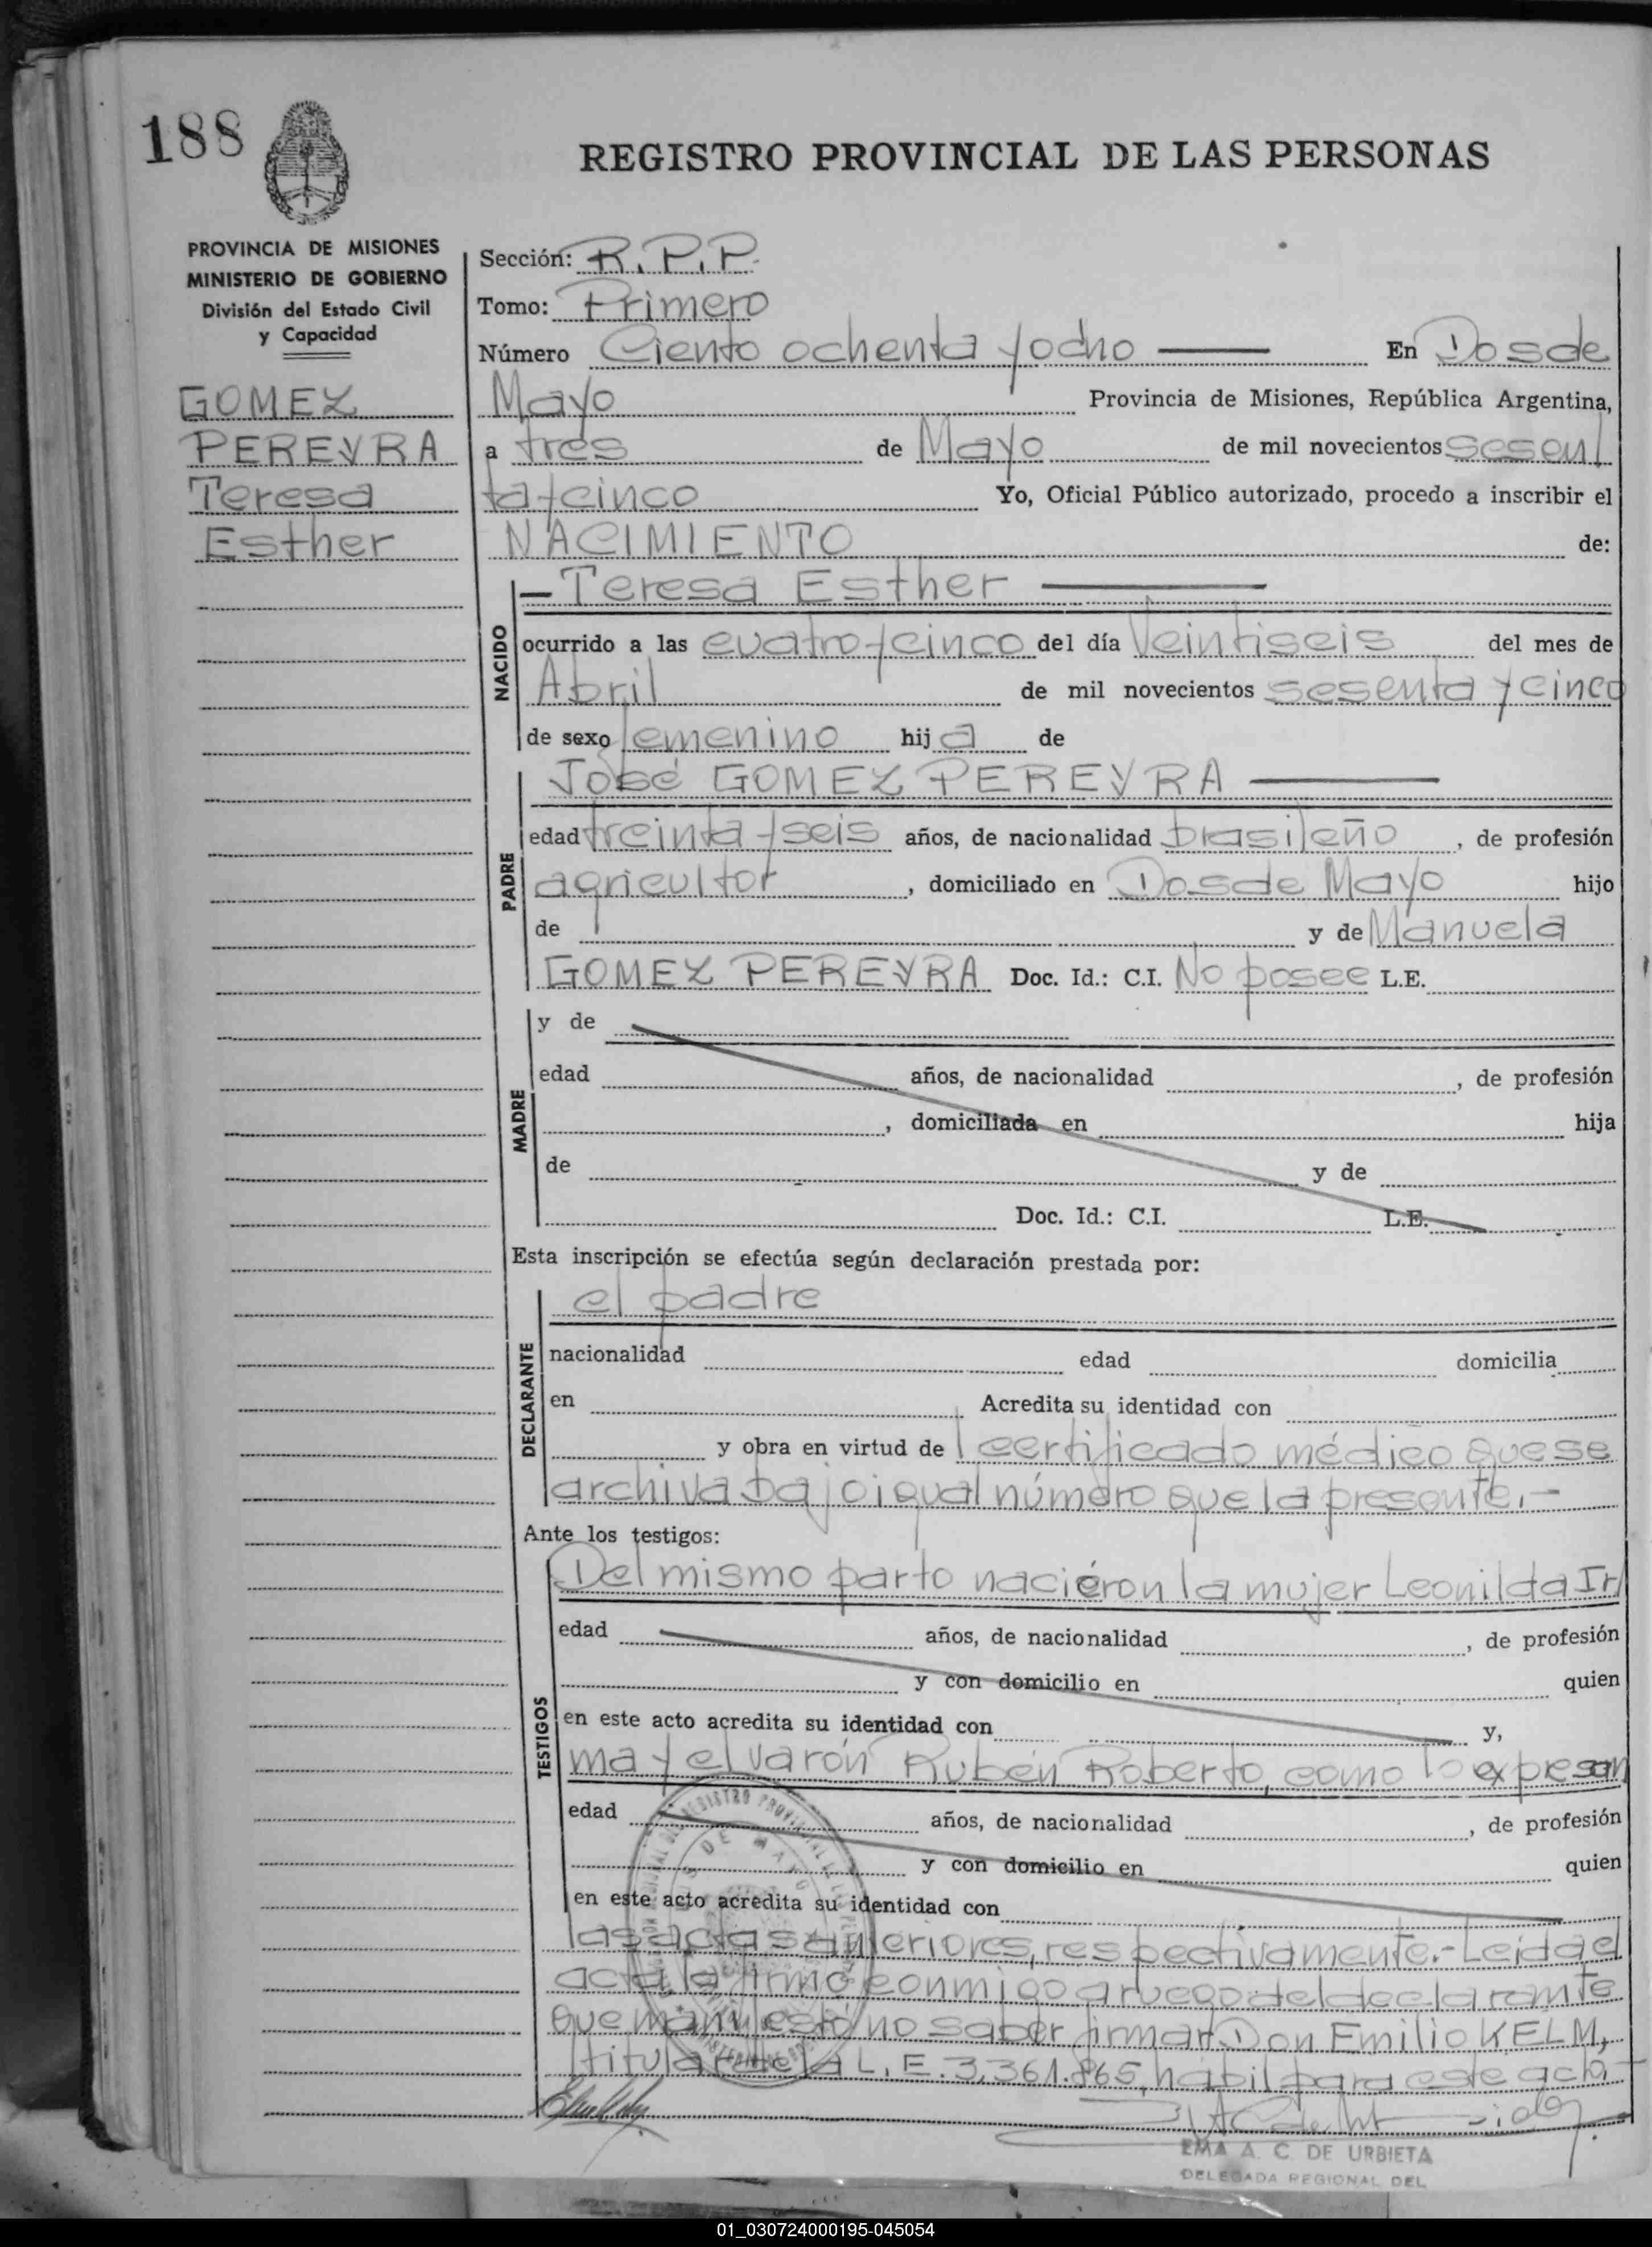 188
REGISTRO PROVINCIAL DE LAS PERSONAS
PROVINCIA DE MISIONES
MINISTERIO DE GOBIERNO
División del Estado Civil
y Capacidad
GOMEZ
PEREYRA
Teresa
Esther
Sección: R.P.P.
Tomo: Primero
Número Ciento ochenta y ocho — En Dos de
Mayo Provincia de Misiones, República Argentina,
a tres de Mayo de mil novecientos sesen
ta y cinco Yo, Oficial Público autorizado, procedo a inscribir el
NACIMIENTO de:
NACIDO
— Teresa Esther —
ocurrido a las cuatro y cinco del día Veintiseis del mes de
Abril de mil novecientos sesenta y cinco
de sexo femenino hija de
PADRE
José GOMEZ PEREYRA —
edad treinta y seis años, de nacionalidad brasileño, de profesión
agricultor, domiciliado en Dos de Mayo hijo
de y de Manuela
GOMEZ PEREYRA Doc. Id.: C.I. No posee L.E.
MADRE
y de
edad años, de nacionalidad , de profesión
, domiciliada en hija
de y de
Doc. Id.: C.I. L.E.
Esta inscripción se efectúa según declaración prestada por:
DECLARANTE
el padre
nacionalidad edad domicilia
en Acredita su identidad con
y obra en virtud de l certificado médico que se
archiva bajo igual número que la presente.-
Ante los testigos:
TESTIGOS
Del mismo parto naciéron la mujer Leonilda Ir
edad años, de nacionalidad , de profesión
y con domicilio en quien
en este acto acredita su identidad con y,
ma y el varón Rubén Roberto, como lo expresan
edad años, de nacionalidad , de profesión
y con domicilio en quien
en este acto acredita su identidad con
las actas anteriores, respectivamente.- Leida el
acta la firmo conmigo a ruego del declarante
que manifestó no saber firmar Don Emilio KELM,
titular de la L.E. 3.361.865, hábil para este acto.-
EMA A. C. DE URBIETA
DELEGADA REGIONAL DEL
01_030724000195-045054